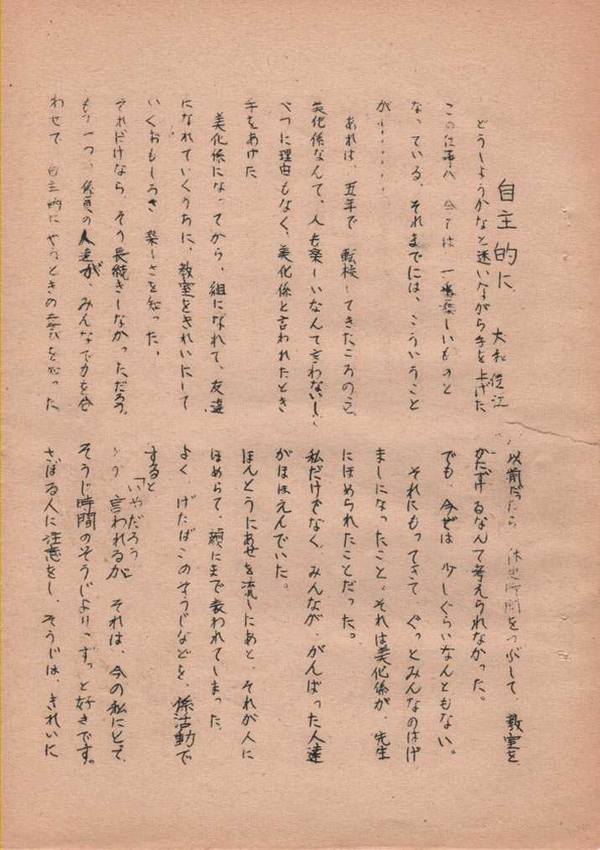 自主的に
大和 江
どうしようかなと迷いながら手を上げた
この仕事が 今では 一番楽しいものと
なっている。それまでには、こういうこと
が……
あれは、五年で 転校してきたころの
美化係なんて、人も楽しいなんて言わないし、
べつに理由もなく、美化係と言われたとき
手をあげた
美化係になってから、組になれて、友達
になれていくうちに、教室をきれいにして
いくおもしろさ 楽しさを知った。
それだけなら、そう長続きしなかっただろう。
もう一つ、係員の人達が、みんなで力を合
わせて 自主的にやるときの を知った
以前だったら 休み時間をつぶして 教室を
かたずけるなんて考えられなかった。
でも、今では 少しぐらいなんともない。
それにもってきて ぐっとみんなのはげ
ましになったこと、それは美化係が、先生
にほめられたことだった。
私だけでなく、みんなが、がんばった人達
がほほえんでいた。
ほんとうにあせを流したあと、それが人に
ほめられて、顔にまで表われてしまった。
よく、げたばこのそうじなどを、係活動で
すると
「いやだろう」
言われるが それは、今の私にとって
そうじ時間のそうじより、ずっと好きです。
さぼる人に注意をし、そうじは、きれいに